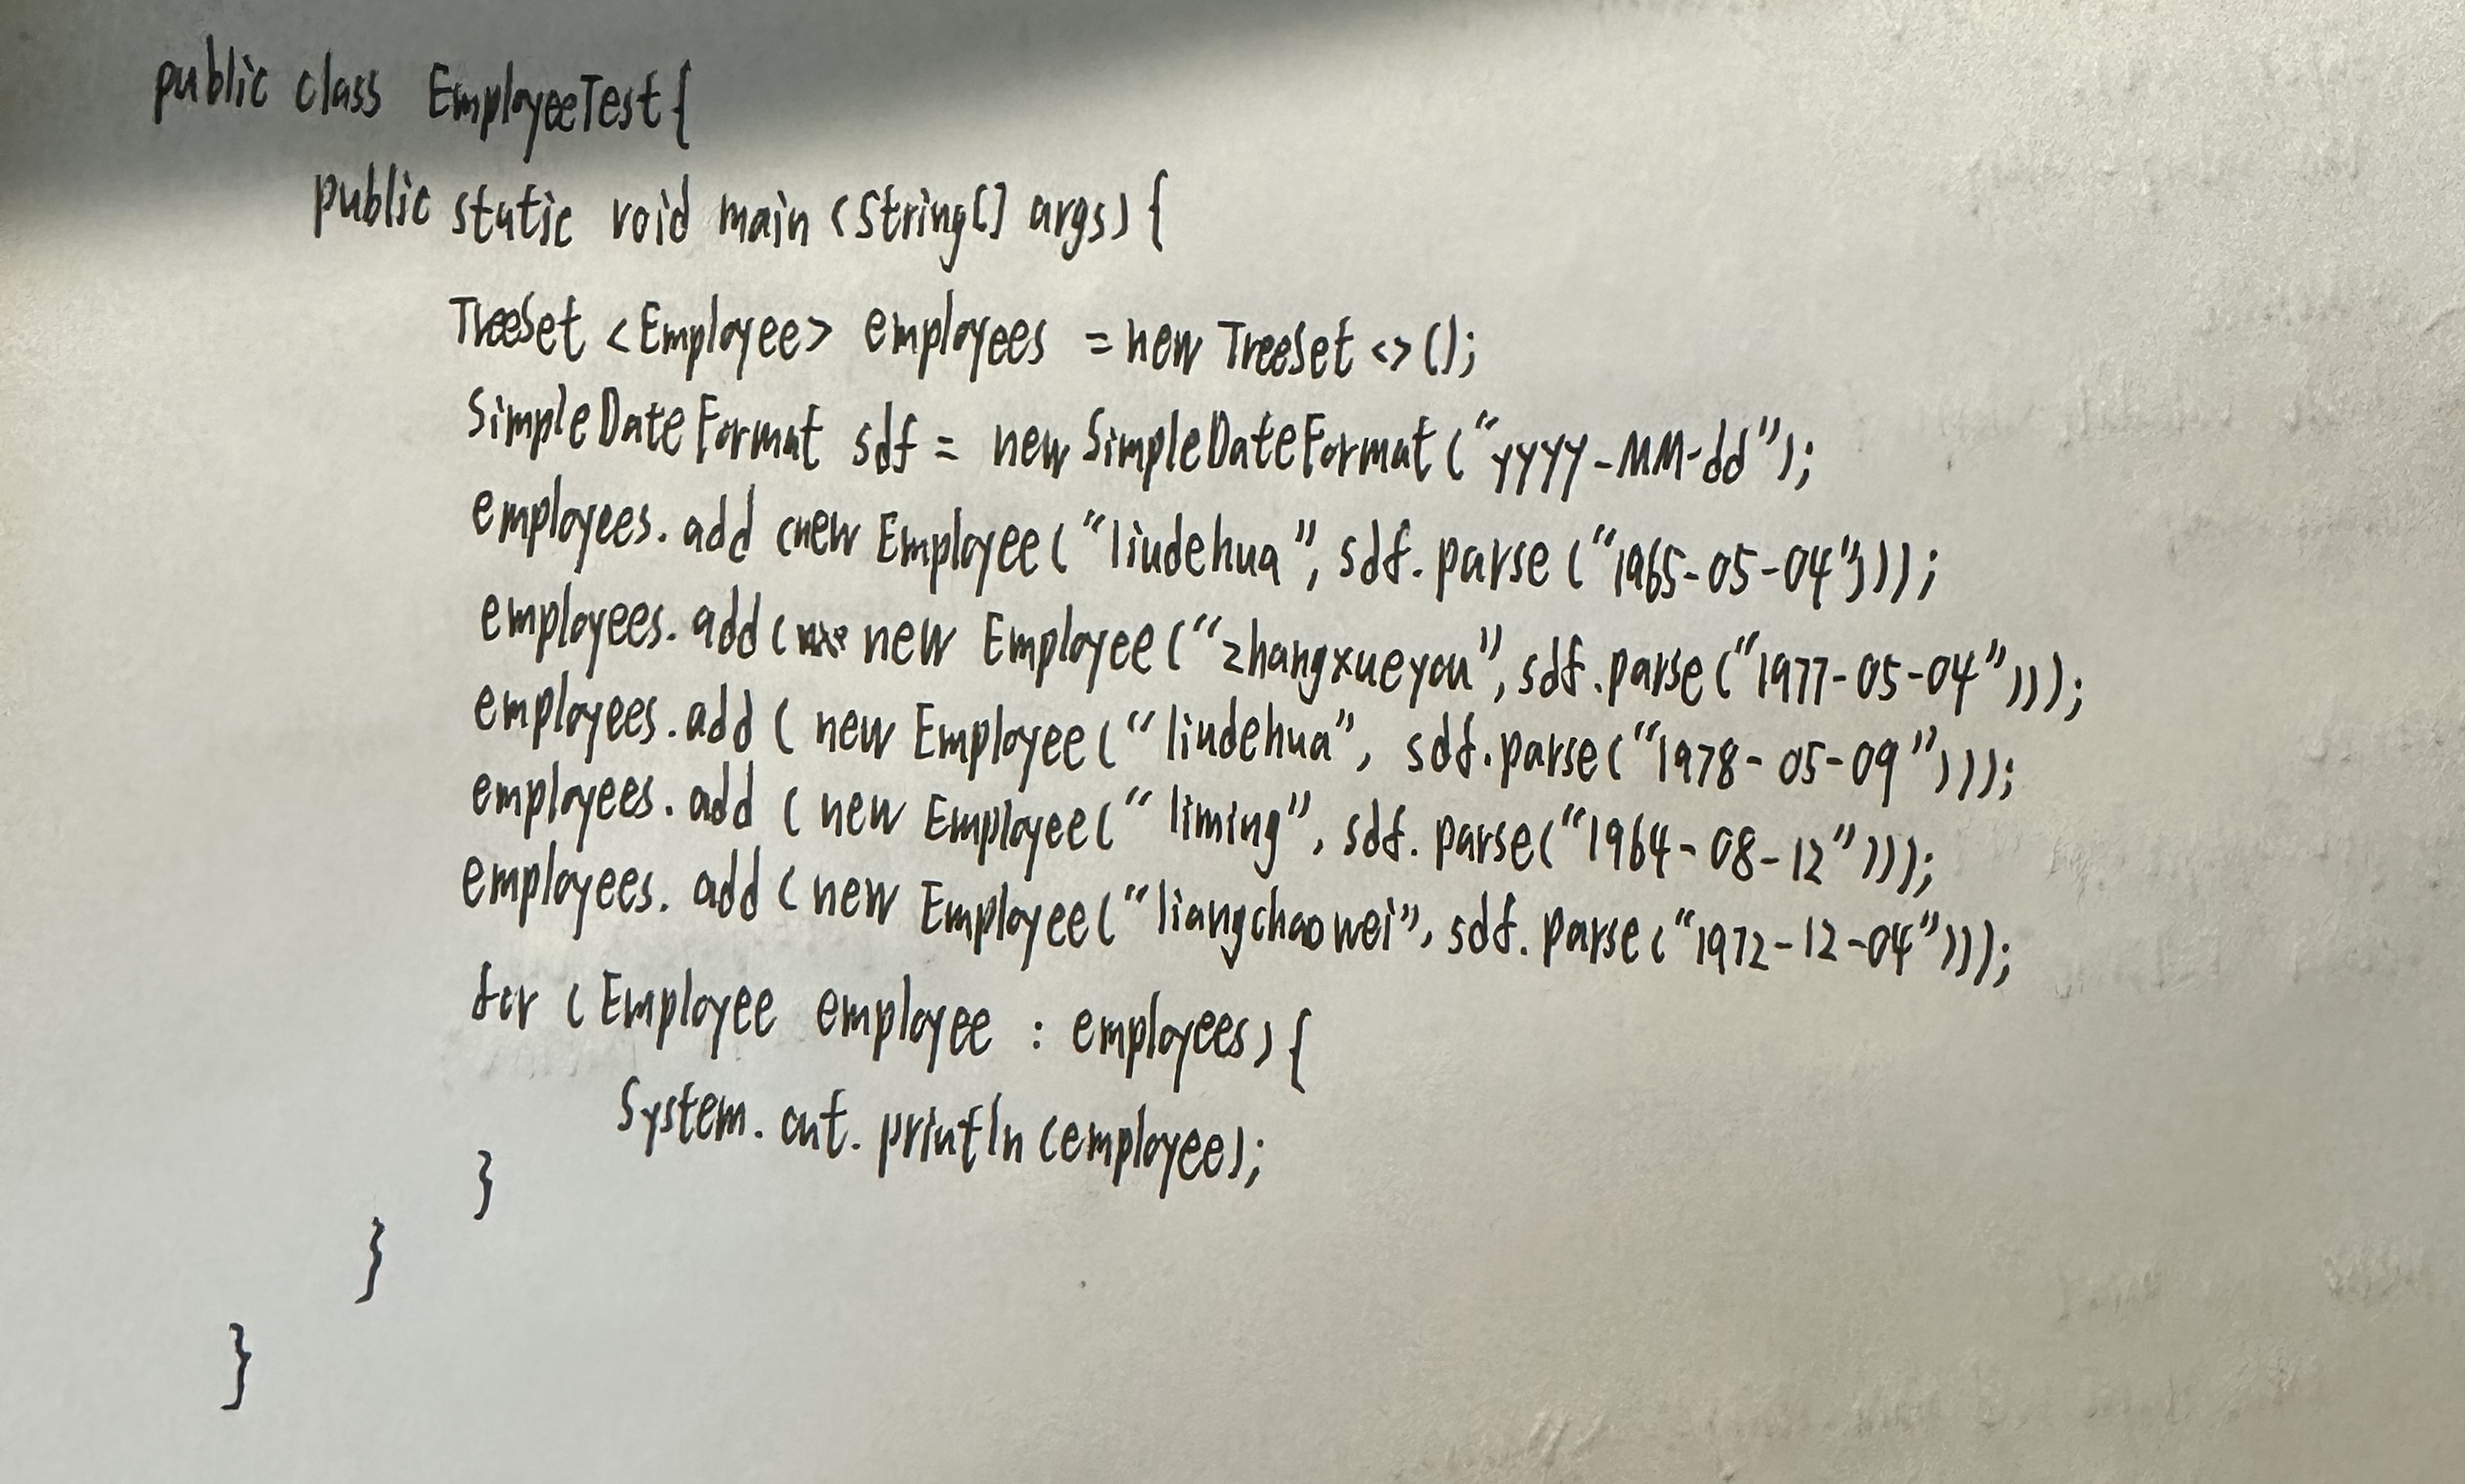 public class EmployeeTest{
public static void main (String[] args) {
TreeSet <Employee> employees = new TreeSet <>();
SimpleDateFormat sdf = new SimpleDateFormat ("yyyy-MM-dd");
employees.add (new Employee ("liudehua", sdf.parse ("1965-05-04")));
employees.add ( new Employee ("zhangxueyou", sdf.parse ("1977-05-04")));
employees.add ( new Employee ("liudehua", sdf.parse("1978-05-09")));
employees.add ( new Employee (" liming", sdf.parse("1964-08-12")));
employees.add ( new Employee ("liangchaowei", sdf.parse ("1972-12-04")));
for (Employee employee : employees) {
System.out.println (employee);
}
}
}